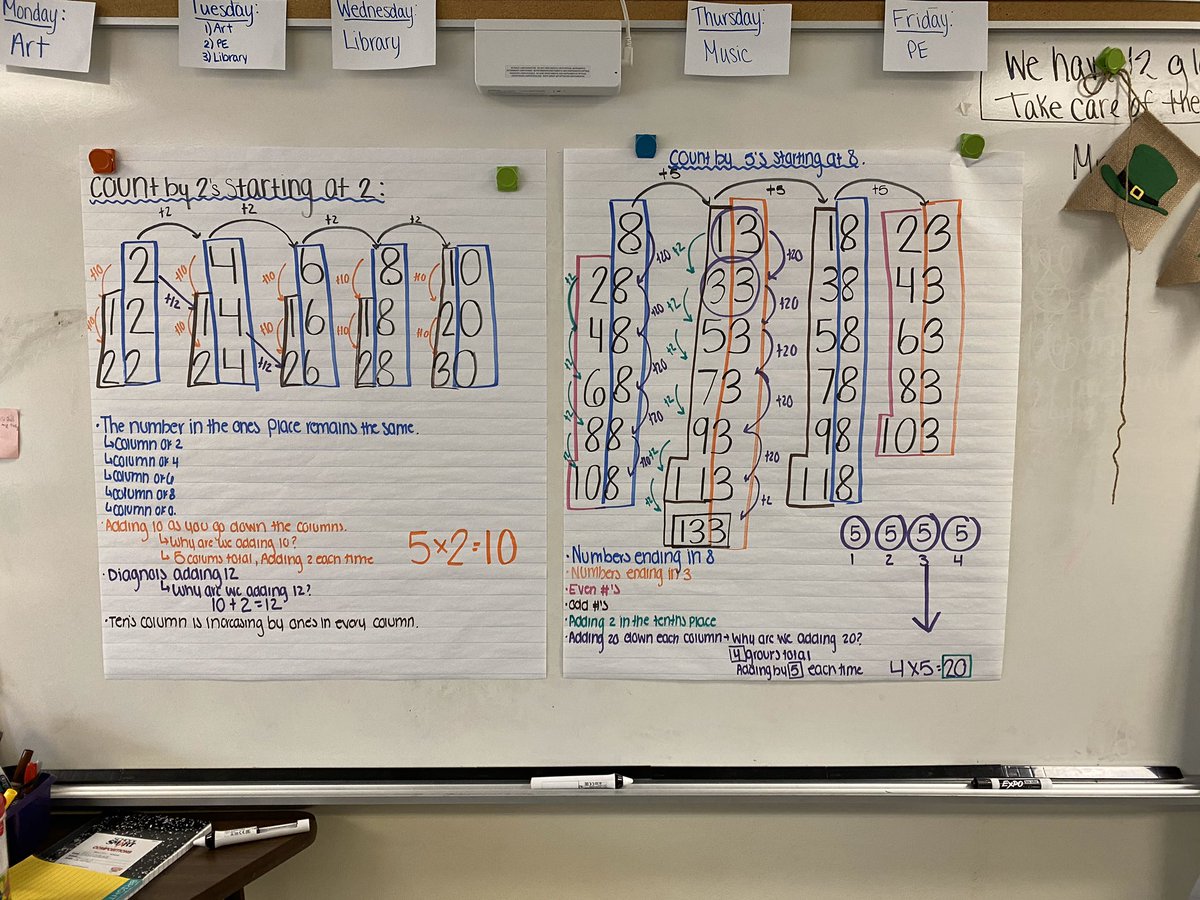 Monday:
Art
Tuesday:
1) Art
2) PE
3) Library
Wednesday:
Library
Thursday:
Music
Friday:
PE
We have 12 gl
Take care of the
Count by 2's starting at 2:
+2 +2 +2 +2
2 4 6 8 10
+10 +10 +10 +10 +10
+12
12 14 16 18 20
+10 +10 +10 +10 +10
+12
22 24 26 28 30
· The number in the ones place remains the same.
↳ column of 2
↳ column of 4
↳ column of 6
↳ column of 8
↳ column of 0.
· Adding 10 as you go down the columns.
↳ Why are we adding 10?
↳ 5 colums total, Adding 2 each time
5×2=10
· Diagnols adding 12
↳ Why are we adding 12?
10+2=12
· Ten's column is increasing by ones in every column.
Count by 5's starting at 8.
+5 +5 +5
8 13 18 23
+20 +2 +20
28 33 38 43
+2 +20 +2 +20
48 53 58 63
+2 +20 +2 +20
68 73 78 83
+2 +20 +2 +20
88 93 98 103
+2 +20 +2 +20
108 113 118
+2 +2
133
5 5 5 5
1 2 3 4
· Numbers ending in 8
· Numbers ending in 3
· Even #'s
· odd #'s
· Adding 2 in the tenths place
· Adding 20 down each column → Why are we adding 20?
4 groups total
Adding by 5 each time
4×5=20
EXPO
COMPOSITION